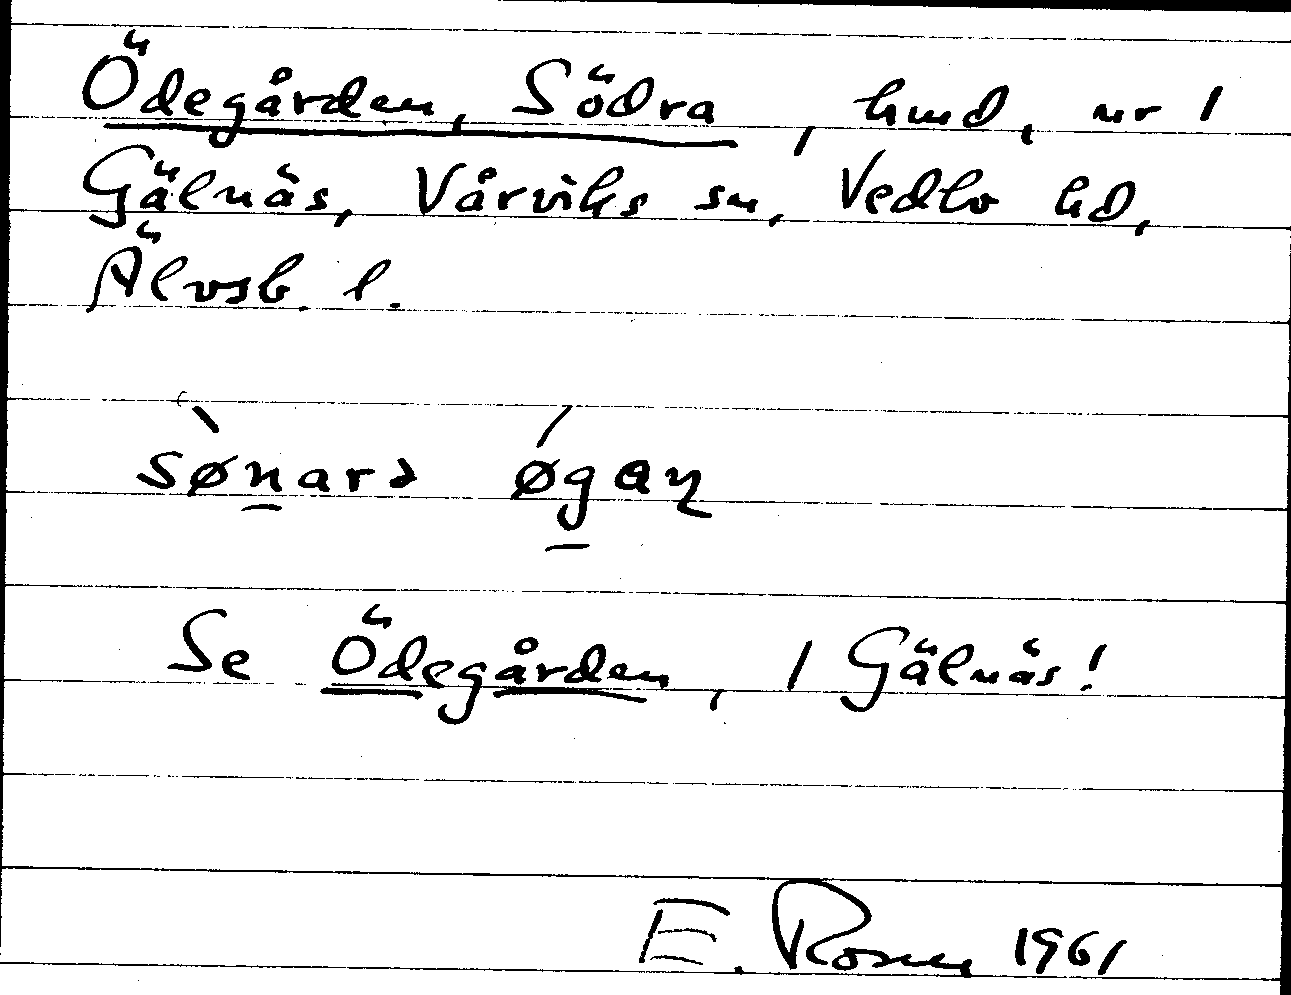 Ödegården, Södra, hmd, nr 1
Gälnäs, Vårviks sn, Vedbo hd,
Älvsb. l.
sø̀narə øǵaɳ
Se Ödegården, 1 Gälnäs!
E. Rosen 1961